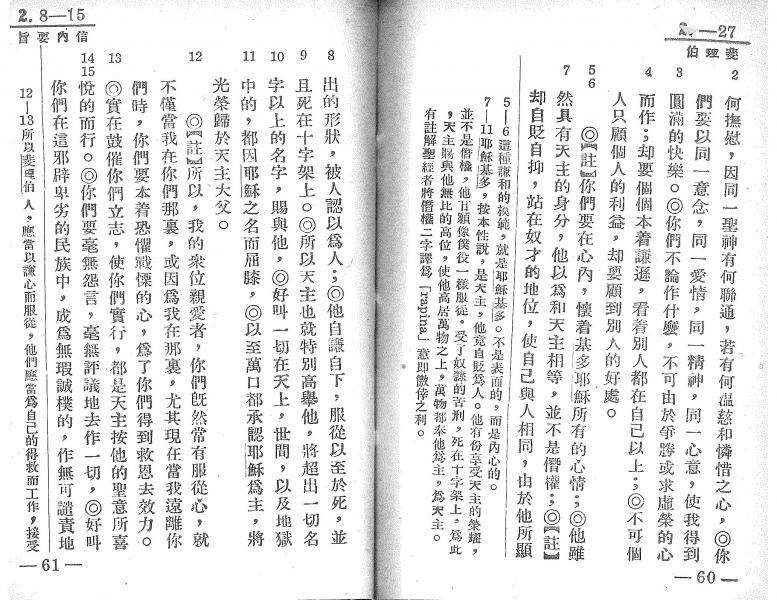 2.—27
斐理伯
2 何撫慰，因同一聖神有何聯通，若有何溫慈和憐惜之心，◎你
們要以同一意念，同一愛情，同一精神，同一心意，使我得到
3 圓滿的快樂。◎你們不論作什麼，不可由於爭勝或求虛榮的心
4 而作；却要個個本着謙遜，看着別人都在自己以上；◎不可個
人只顧個人的利益，却要顧到別人的好處。
5 6 ◎【註】你們要在心內，懷着基多耶穌所有的心情；◎他雖
7 然具有天主的身分，他以為和天主相等，並不是僭權；◎【註】
却自貶自抑，站在奴才的地位，使自己與人相同，由於他所顯
5—6 這種謙和的模範，就是耶穌基多。不是表面的，而是內心的。
7—11 耶穌基多，按本性說，是天主，他竟自貶為人。他有份享受天主的榮耀，
並不是僭權，他甘願像僕役一樣服從，受了奴隸的苦刑，死在十字架上，為此
，天主賜與他無比的高位，使他高居萬物之上，萬物都奉他為主，為天主。
有註解聖經者將僭權二字譯為「rapina」意即僥倖之利。
—60—
2. 8—15
信內要旨
8 出的形狀，被人認以為人；◎他自謙自下，服從以至於死，並
9 且死在十字架上。◎所以天主也就特別高舉他，將超出一切名
10 字以上的名字，賜與他，◎好叫一切在天上，世間，以及地獄
11 中的，都因耶穌之名而屈膝，◎以至萬口都承認耶穌為主，將
光榮歸於天主大父。
12 ◎【註】所以，我的衆位親愛者，你們旣然常有服從心，就
不僅當我在你們那裏，或因為我在那裏，尤其現在當我遠離你
們時，你們要本着恐懼戰慄的心，為了你們得到救恩去效力。
13 ◎實在鼓催你們立志，使你們實行，都是天主按他的聖意所喜
14 15 悅的而行。◎你們要毫無怨言，毫無評議地去作一切，◎好叫
你們在這邪辟卑劣的民族中，成為無瑕誠樸的，作無可譴責地
12—13 所以斐理伯人，應當以謙心而服從，他們應當為自己的得救而工作，接受
—61—